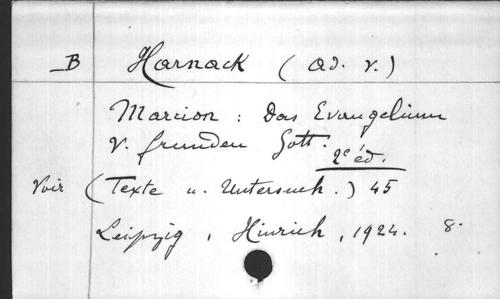 B Harnack (Ad. v.)
Marcion : Das Evangelium
v. fremden Gott.
2e éd.
Voir (Texte u. Untersuch.) 45
Leipzig, Hinrich, 1924. 8.